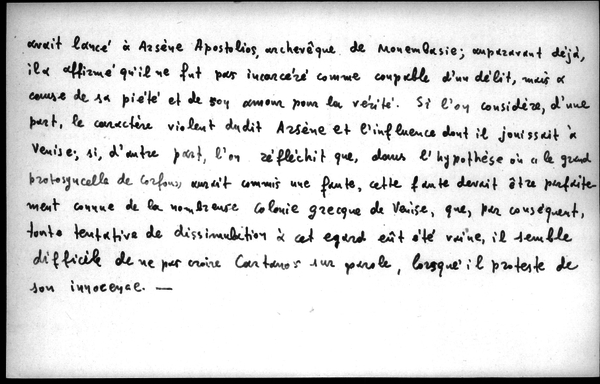 avait lancé à Arsène Apostolios, archevêque de Monembasie; auparavant déjà,
il a affirmé qu'il ne fut pas incarcéré comme coupable d'un délit, mais a
cause de sa piété et de son amour pour la vérité. Si l'on considère, d'une
part, le caractère violent dudit Arsène et l'influence dont il jouissait à
Venise; si, d'autre part, l'on réfléchit que, dans l'hypothèse où a le grand
protosyncelle de Corfou, aurait commis une faute, cette faute devait être parfaite-
ment connue de la nombreuse colonie grecque de Venise, que, par conséquent,
toute tentative de dissimulation à cet egard eût été vaine, il semble
difficile de ne pas croire Cartanos sur parole, lorsqu'il proteste de
son innocence. —